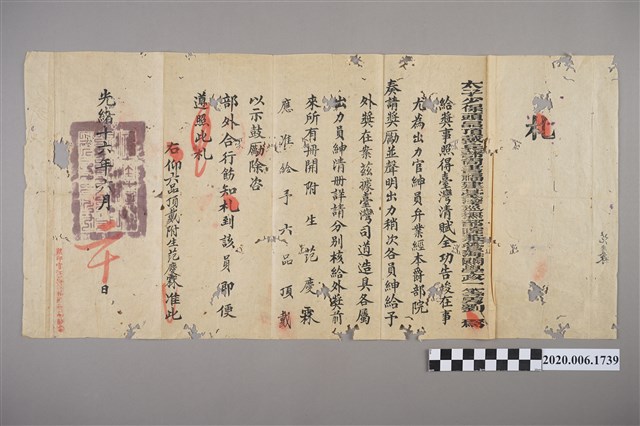 札
太子少保頭品頂戴兵部尚書福建臺灣巡撫部院兼管海關學政一等男劉 為
給獎事照得臺灣清賦全功告竣在事
尤為出力官紳員弁業經本爵部院
奏請獎勵並聲明出力稍次各員紳給予
外獎在案茲據臺灣司道造具各屬
出力員紳清册詳請分別核給外獎前
來所有冊開附生范慶霖
應准給予六品頂戴
以示鼓勵除咨
部外合行飭知札到該員即便
遵照此札
右仰六品頂戴附生范慶霖准此
光緒十六年六月二十日
2020.006.1739